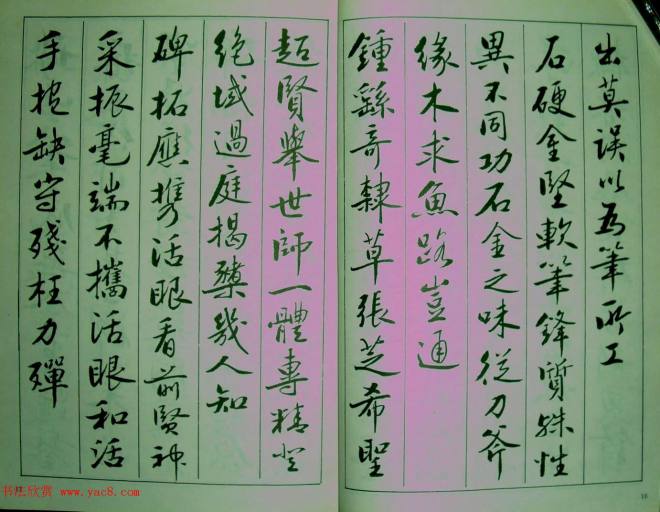 出莫误以为笔所工
石硬金坚软笔锋质殊性
異不同功石金之味從刀斧
缘木求鱼路豈通
鍾繇奇隸草張芝希聖
超賢舉世師一體專精登
绝域過庭揭櫫幾人知
碑拓應携活眼看前賢神
采振毫端不攜活眼和活
手抱缺守殘枉力殫
书法欣赏 www.yac8.com
16